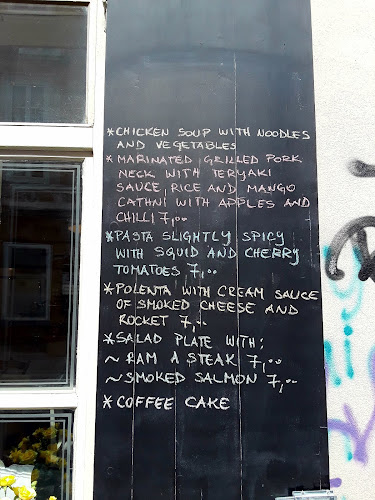 *CHICKEN SOUP WITH NOODLES
AND VEGETABLES
*MARINATED GRILLED PORK
NECK WITH TERYAKI
SAUCE, RICE AND MANGO
CATHNI WITH APPLES AND
CHILLI 7,00
*PASTA SLIGHTLY SPICY
WITH SQUID AND CHERRY
TOMATOES 7,00
*POLENTA WITH CREAM SAUCE
OF SMOKED CHEESE AND
ROCKET 7,00
*SALAD PLATE WITH:
~ RAM A STEAK 7,00
~SMOKED SALMON 7,00
*COFFEE CAKE